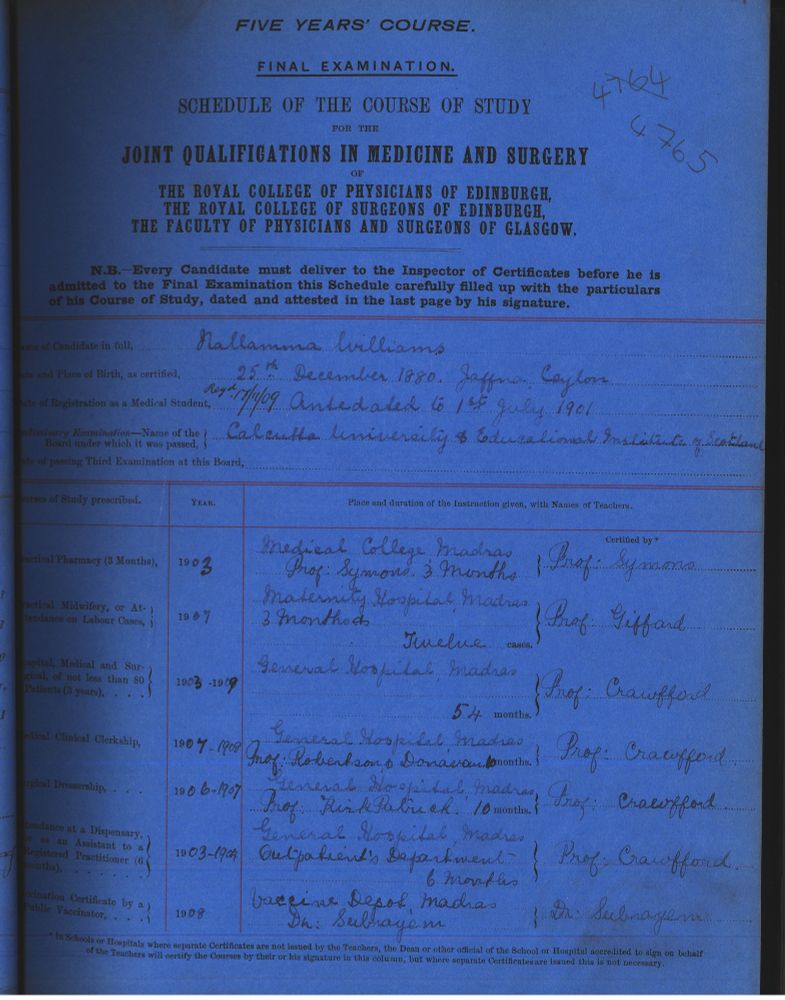 FIVE YEARS' COURSE.
FINAL EXAMINATION.
4764
4765
SCHEDULE OF THE COURSE OF STUDY
FOR THE
JOINT QUALIFICATIONS IN MEDICINE AND SURGERY
OF
THE ROYAL COLLEGE OF PHYSICIANS OF EDINBURGH,
THE ROYAL COLLEGE OF SURGEONS OF EDINBURGH,
THE FACULTY OF PHYSICIANS AND SURGEONS OF GLASGOW.
N.B.—Every Candidate must deliver to the Inspector of Certificates before he is
admitted to the Final Examination this Schedule carefully filled up with the particulars
of his Course of Study, dated and attested in the last page by his signature.
of Candidate in full, Nallamma Williams
and Place of Birth, as certified, 25th December 1880. Jaffna, Ceylon
of Registration as a Medical Student, Regd 17/11/09 Antedated to 1st July 1901
Examination—Name of the
Board under which it was passed, Calcutta University & Educational Institute of Scotland
of passing Third Examination at this Board,
of Study prescribed. YEAR. Place and duration of the Instruction given, with Names of Teachers.
Certified by *
Pharmacy (3 Months), 1903 Medical College, Madras
Prof: Symons. 3 Months Prof: Symons
Midwifery, or At-
tendance on Labour Cases, 1907 Maternity Hospital, Madras
3 Months Prof: Giffard
Twelve cases.
Medical and Sur-
gical, of not less than 80
Patients (3 years), 1903-1909 General Hospital, Madras
54 months. Prof: Crawfford
Clinical Clerkship, 1907-1908 General Hospital, Madras
Prof: Robertson & Donavan 10 months. Prof: Crawfford
Dressership, 1906-1907 General Hospital, Madras
Prof. KirkPatrick. 10 months. Prof: Crawfford.
at a Dispensary,
as an Assistant to a
Registered Practitioner (6
months), 1903-1904 General Hospital, Madras
Outpatient's Department
6 Months Prof: Crawfford.
Certificate by a
Public Vaccinator, 1908 Vaccine Depot, Madras
Dr: Subrayem Dr: Subrayem
* In Schools or Hospitals where separate Certificates are not issued by the Teachers, the Dean or other official of the School or Hospital accredited to sign on behalf
of the Teachers will certify the Courses by their or his signature in this column, but where separate Certificates are issued this is not necessary.